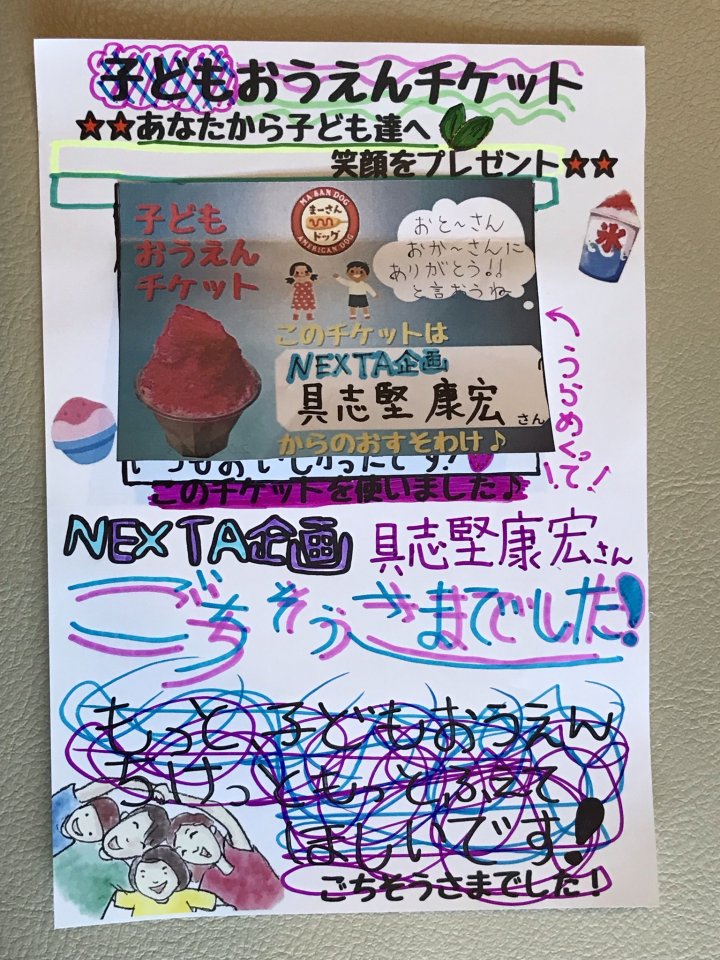 子どもおうえんチケット
★★あなたから子ども達へ
笑顔をプレゼント★★
子ども
おうえん
チケット
MA SAN DOG
まーさん
ドッグ
AMERICAN DOG
おと〜さん
おか〜さんに
ありがとう!!
と言おうね
氷
このチケットは
NEXTA企画
具志堅 康宏 さん
からのおすそわけ♪
うらめくって!!
いつもおいしかったです!
このチケットを使いました♪
NEXTA企画 具志堅康宏さん
ごちそうさまでした!
もっと、子どもおうえん
ちけっともっとふえて
ほしいです!
ごちそうさまでした!